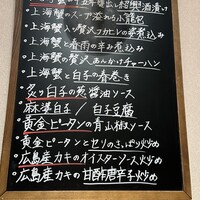 ・上海蟹の十五年貯出し紹興酒漬け
・上海蟹のスープ溢れる小籠包
・上海蟹入り贅沢フカヒレの姿煮込み
・上海蟹と春雨の辛み煮込み
・上海蟹の贅沢あんかけチャーハン
・上海蟹と白子の春巻き
・炙り白子の葱醤油ソース
・麻婆白子／白子豆腐
・黄金ピータンの青山椒ソース
・黄金ピータンとセリのさっぱり炒め
・広島産カキのオイスターソース炒め
・広島産カキの甘酢唐辛子炒め